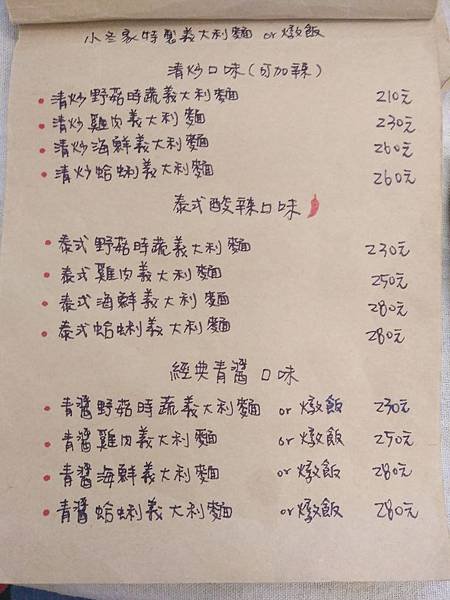 小主家特製義大利麵 or 燉飯
清炒口味(可加辣)
清炒野菇時蔬義大利麵 210元
清炒雞肉義大利麵 230元
清炒海鮮義大利麵 260元
清炒蛤蜊義大利麵 260元
泰式酸辣口味
泰式野菇時蔬義大利麵 230元
泰式雞肉義大利麵 250元
泰式海鮮義大利麵 280元
泰式蛤蜊義大利麵 280元
經典青醬口味
青醬野菇時蔬義大利麵 or 燉飯 230元
青醬雞肉義大利麵 or 燉飯 250元
青醬海鮮義大利麵 or 燉飯 280元
青醬蛤蜊義大利麵 or 燉飯 280元